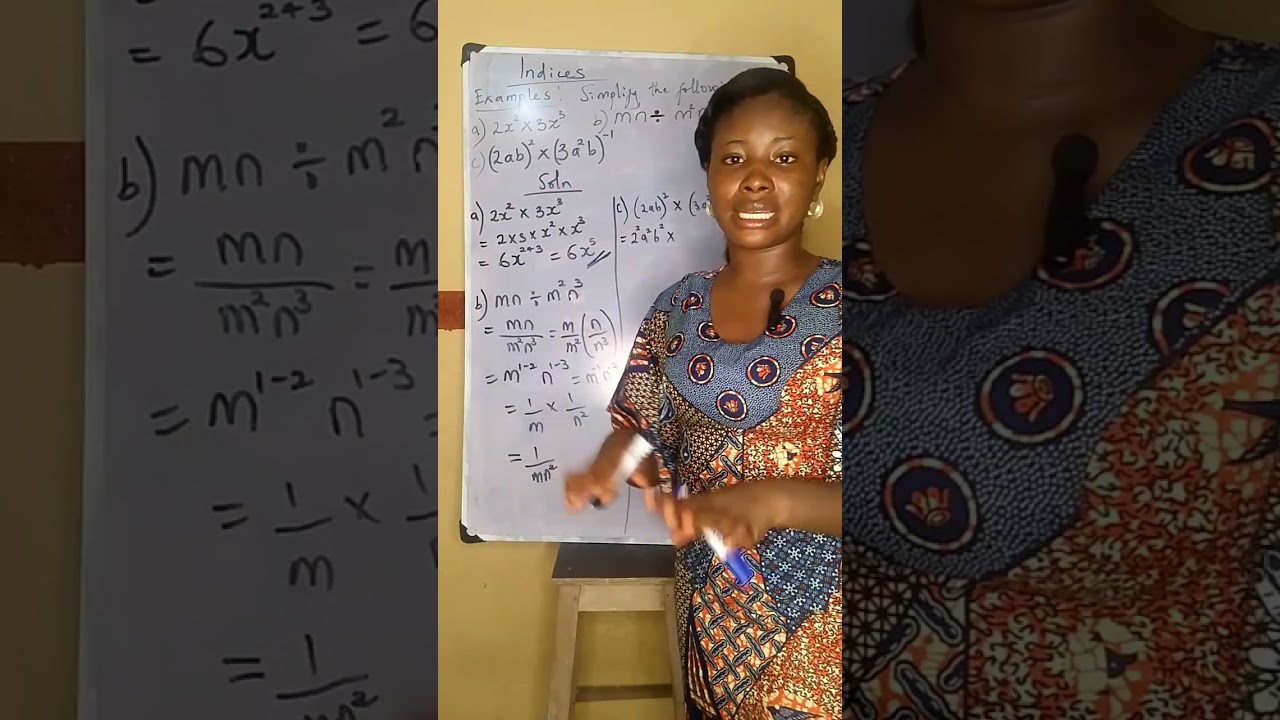 Indices
Examples: Simplify the followi
a) 2x² × 3x³ b) mn ÷ m²n
c) (2ab)² × (3a²b)⁻¹
Soln
a) 2x² × 3x³
= 2×3×x²×x³
= 6x²⁺³ = 6x⁵
b) mn ÷ m²n³
= mn/m²n³ = m/m² (n/n³)
= m¹⁻² n¹⁻³ = m⁻¹n⁻²
= 1/m × 1/n²
= 1/mn²
c) (2ab)² × (3a²
= 2²a²b² ×